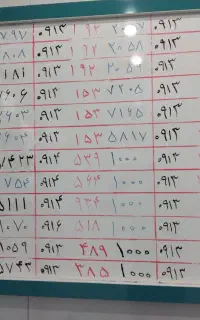 ۷۹۷ ۰۹۱۳ ۱۹۲ ۲۰۵۷ ۰۹۱۳
۸۰۸ ۰۹۱۳ ۱۹۲ ۲۰۵۸ ۰۹۱۳
۱۸۱ ۰۹۱۳ ۱۹۲ ۲۰۵۹ ۰۹۱۳
۷۶۰۶ ۰۹۱۳ ۱۵۳ ۷۲۰۵ ۰۹۱۳
۶۶۰۳ ۰۹۱۳ ۱۵۳ ۷۱۶۵ ۰۹۱۳
۰۹۱۳ ۱۵۳ ۵۸۱۷ ۰۹۱۳
۷۴۲۳ ۰۹۱۳ ۵۳۹ ۱۰۰۰ ۰۹۱۳
۷۵۴ ۰۹۱۳ ۵۶۴ ۱۰۰۰ ۰۹۱۳
۵۱۱۱ ۰۹۱۳ ۹۳۴ ۱۰۰۰ ۰۹۱۳
۱۰۷۰ ۰۹۱۶ ۵۱۸ ۱۰۰۰ ۰۹۱۳
۹۰۵۹ ۰۹۱۳ ۴۸۹ ۱۰۰۰ ۰۹۱۳
۵۷۴۳ ۰۹۱۳ ۳۸۵ ۱۰۰۰ ۰۹۱۳